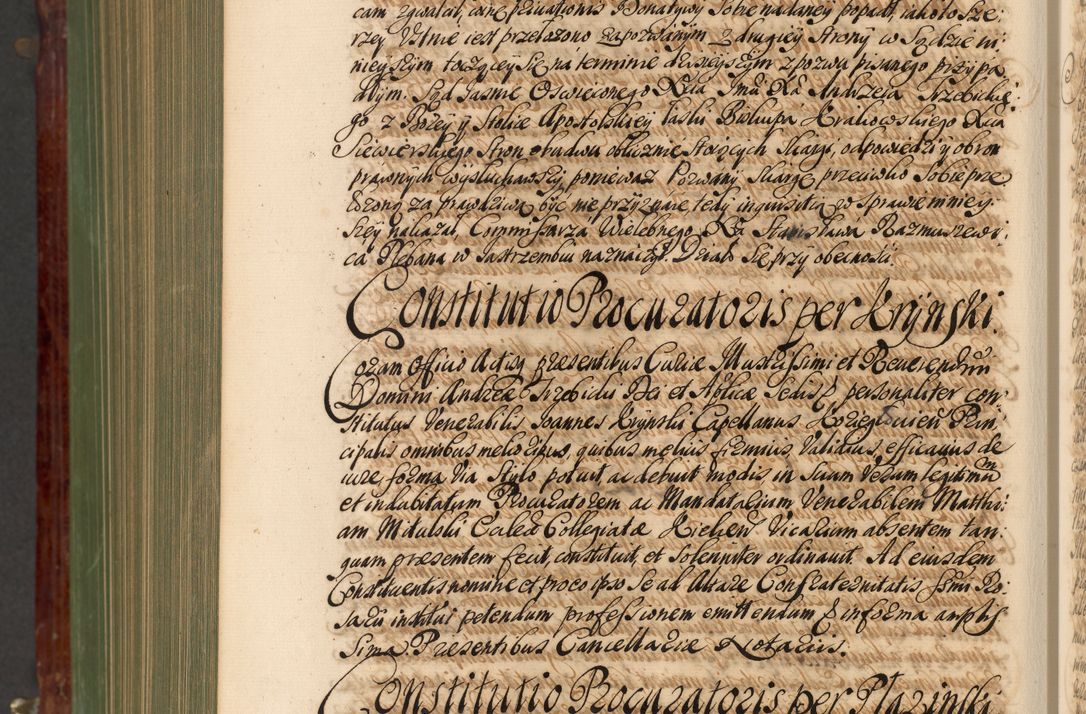 cam zgwałcił, w one privationis Donatywy Sobie nadaney popadł, iako to Sze:
rzey Vstnie iest przełożono zapozwanym z drugiey Strony w Sądzie ni:
nieyszym toczącey Się na terminie dzisieyszym z pozwu pisanego przypa
dłym. Sąd Jasnie Oświeconego Xcia Jmći Xa Andrzeia Trzebickie
go z Bozey y Stolice Apostolskiey łaski Biskupa Krakowskiego Xcia
Siewierskiego Stron obudwu oblicznie Stoiących Skargi, odpowiedzi y obron
prawnych wysłuchawszy, poniewaz Pozwany Skargę przeciwko Sobie prze
łozoną za prawdziwą być nie przyznaie, tedy inquisitią w sprawie niniey:
szey nakazał, Commissarza Wielebnego Xa Stanisława Razmuszewi:
ca Plebana w Jastrzembiu naznaczył. Działo Się przy obecności.
Constitutio Procuratoris per Krynski.
Coram Officio Actisq presentibus Curiæ Illustrissimi et Reuerendmi
Domini Andreæ Trzebicki Dei et Aplicæ Sedis &c personaliter con
stitutus Venerabilis Joannes Krynski Capellanus Koziegłouien Prin
cipalis omnibus melioribus, quibus melius firmius, validius, efficatius de
iure, forma via Stylo potuit, ac debuit modis, in Suum verum legitimum
et indubitatum Procuratorem ac Mandatarium Venerabilem Matthi:
am Mitulski Eccles Collegiatæ Kielcen Vicarium absentem tan:
quam presentem fecit, constituit, et Solenniter ordinauit. Ad eiusdem
Constituentis nomine et pro eo ipso Se ad Altare Confraternitatis Ssmi Ro:
sarii institui petendum professionem emittendum &c in forma amplis
Sima. Presentibus Cancellariæ Notariis.
Constitutio Procuratoris per Plazinski